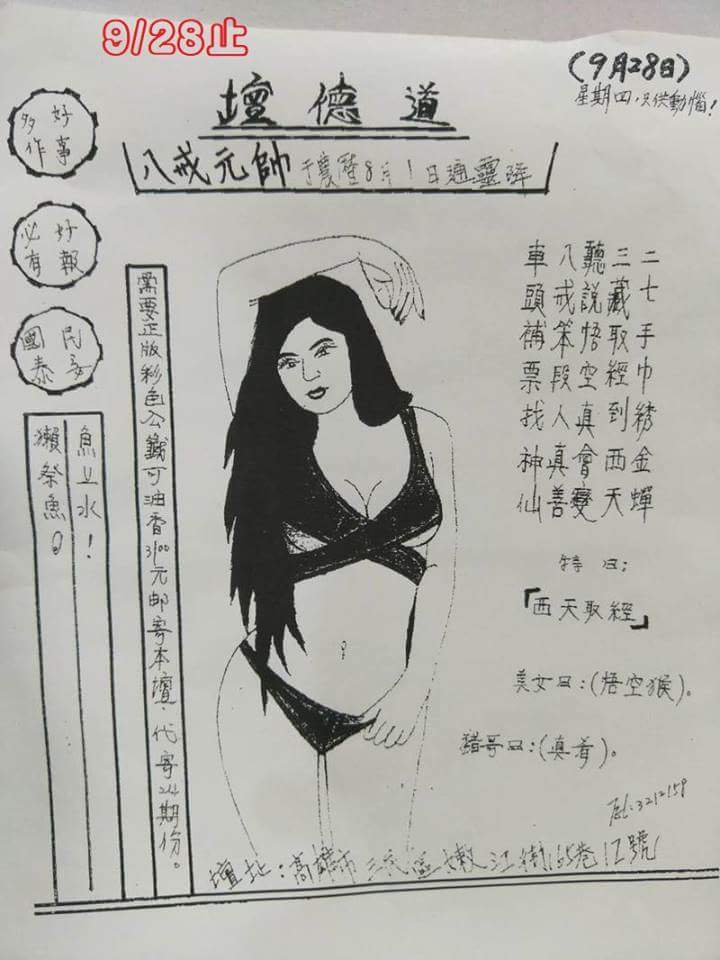 9/28止
(9月28日)
星期四,只供動惱!
道德壇
八戒元帥 于農歷8月1日通靈降
多作好事
必有好報
國泰民安
二七手巾綉金蟬
三藏取經到西天
聽說悟空真會變
八戒笨段人真善
車頭補票找神仙
特曰:
「西天取經」
美女曰:(悟空猴)。
豬哥曰:(真肴)。
需要正版彩色公籤可油香3100元邮寄本壇.代寄24期份。
魚上水!
獺祭魚。
Tel:3212159
壇址:高雄市三民區嫩江街165巷12號